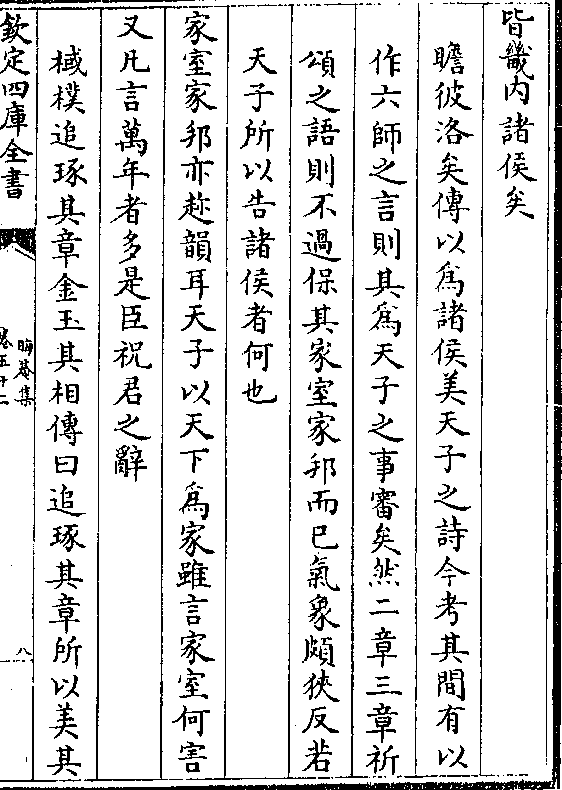 皆畿内諸侯矣
瞻彼洛矣傳以爲諸侯美天子之詩今考其間有以
作六師之言則其爲天子之事審矣然二章三章祈
頌之語則不過保其家室家邦而已氣象頗狹反若
天子所以告諸侯者何也
家室家邦亦趂韻耳天子以天下爲家雖言家室何害
又凡言萬年者多是臣祝君之辭
棫樸追琢其章金玉其相傳曰追琢其章所以美其
欽定四庫全書
晦菴集
卷五十二
八